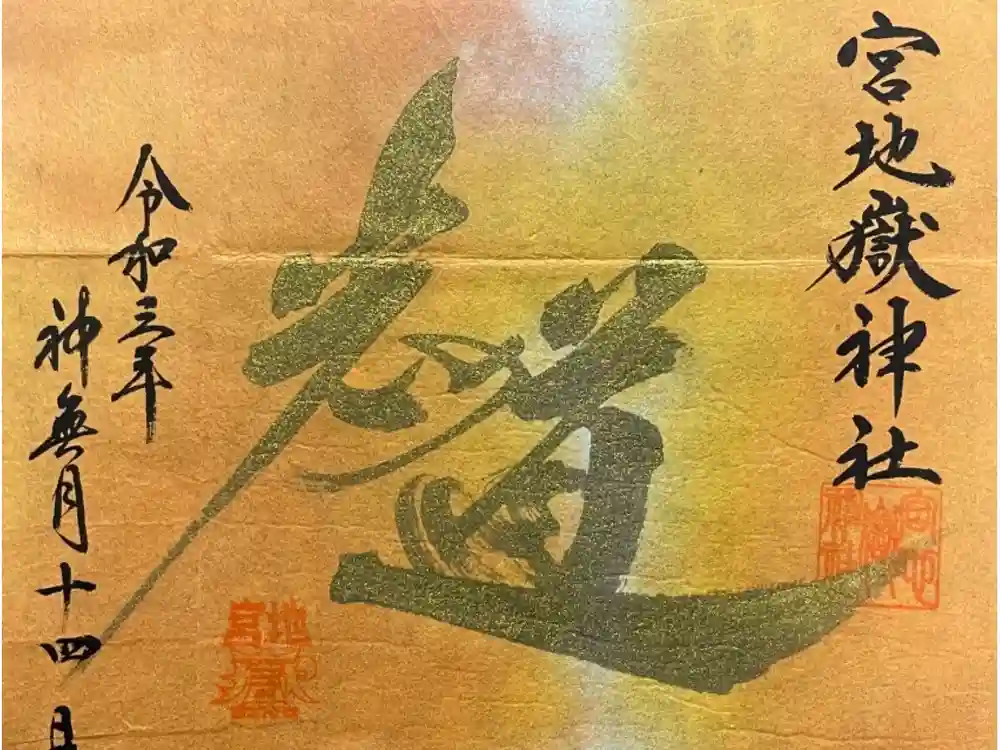 宮地嶽神社
宮地嶽神社
光の道
宮地嶽
令和三年
神無月十四日